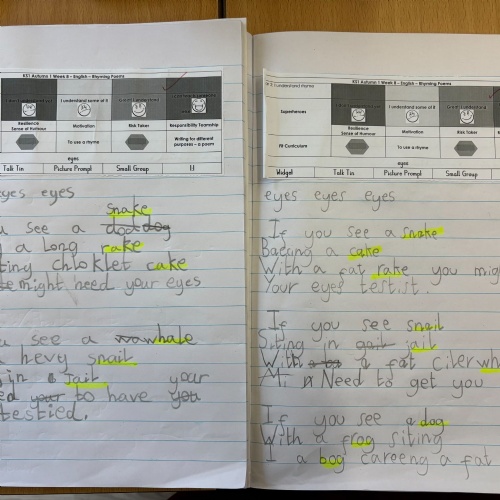 KS1 Autumn 1 Week 8 - English - Rhyming Poems
I understand some of it
Great I understand
Resilience
Sense of Humour
Motivation
Risk Taker
Responsibility Teamship
To use a rhyme
Writing for different
purposes – a poem
eyes
Talk Tin
Picture Prompt
Small Group
1:1
eyes eyes
snake
see a dog
a Long rake
chloklet cake
might need your eyes
see a whale
hevy snail
in a Jail your
your to have you
testied.
KS1 Autumn 1 Week 8 - English - Rhyming Poems
I understand some of it
Great I understand
Superheroes
Resilience
Sense of Humour
Motivation
Risk Taker
FS Curriculum
To use a rhyme
eyes
Widget
Talk Tin
Picture Prompt
Small Group
eyes eyes eyes
If you see a snake
Bacang a cake
With a fat rake you mig
Your eyes testist.
If you see snail
Siting in gait jail
With a fat Cilerwh
Mi n Need to get you
If you see a dog
With a frog siting
I a bog careeng a fat